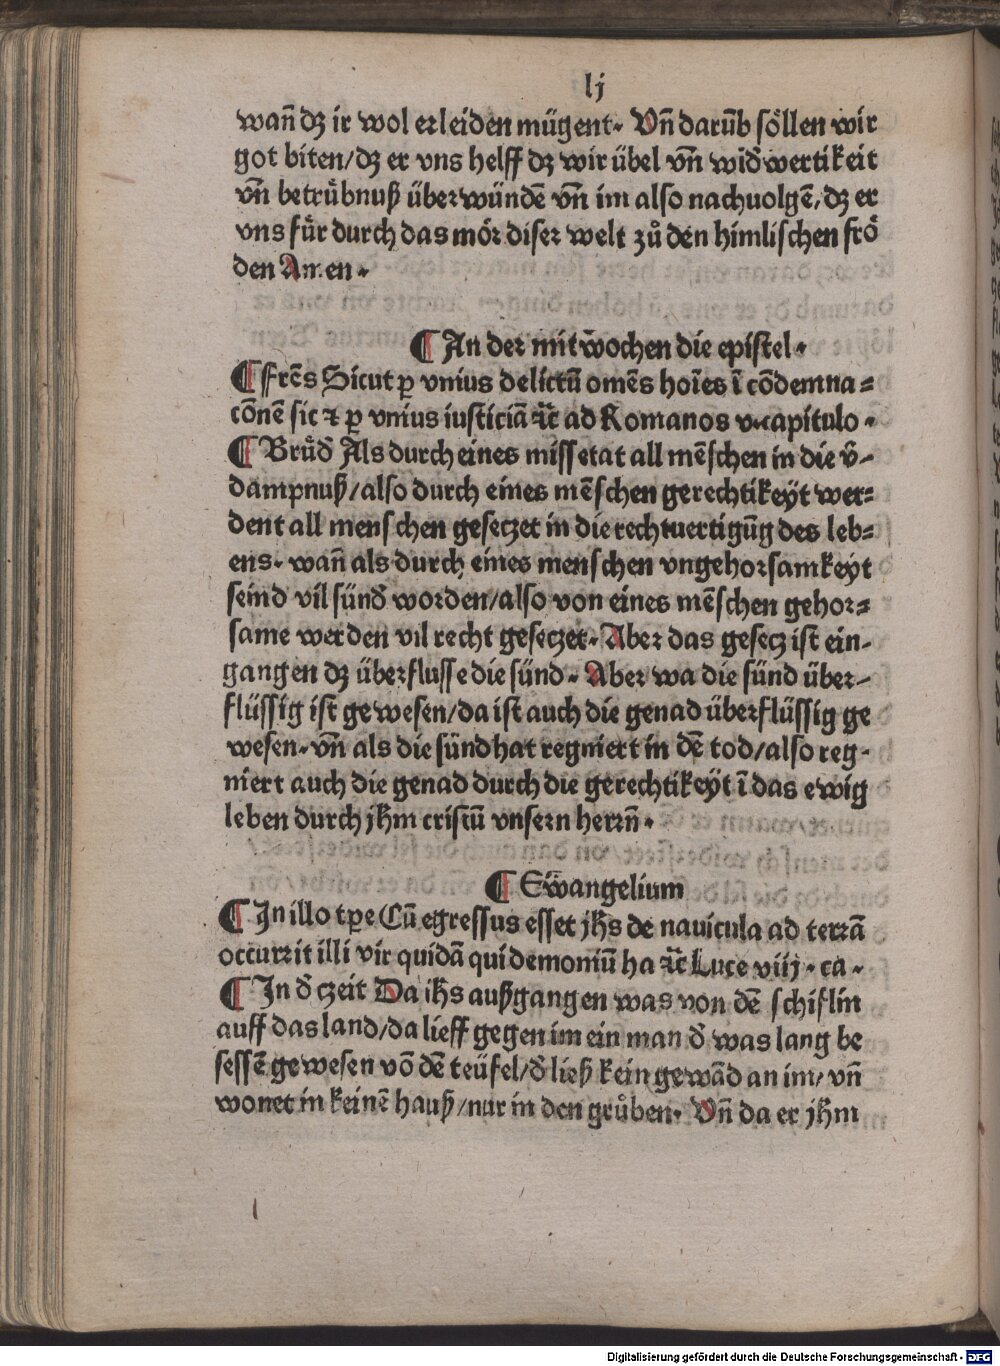 lj
wañ dꝫ ir wol erleiden mügent. Vñ darūb söllen wir
got biten/dꝫ er vns helff dꝫ wir übel vñ wid̄wertikeit
vñ betrübnuß überwündē vñ im also nachuolgē, dꝫ er
vns für durch das mör diser welt zů den himlischen frö
den Amen.
¶ An der mitwochen die epistel.
¶ Frēs Sicut ꝑ vnius delictū omēs hoīes ī cōdemna⸗
cōnē sic ⁊ ꝑ vnius iusticiā ⁊c̄ ad Romanos v. capitulo.
¶ Brůd̄ Als durch eines missetat all mēschen in die v̄-
dampnuß/also durch eines mēschen gerechtikeÿt wer⸗
dent all menschen geseczet in die rechtuertigūg des leb⸗
ens. wañ als durch eines menschen vngehorsamkeyt
seind vil sünd̄ worden/also von eines mēschen gehor⸗
same werden vil recht geseczet. Aber das gesecz ist ein-
gangen dꝫ überflusse die sünd. Aber wa die sünd über-
flüssig ist gewesen/da ist auch die genad überflüssig ge
wesen. vñ als die sünd hat regniert in dē tod/also reg-
niert auch die genad durch die gerechtikeÿt ī das ewig
leben durch jh̄m cristū vnsern herrñ.
¶ Ewangelium
¶ In illo tꝑe Cū egressus esset jh̄s de nauicula ad terrā
occurrit illi vir quidā qui demoniū ha ⁊c̄ Luce viij. ca.
¶ In d̄ czeit Da ih̄s außgangen was von dē schiflin
auff das land/da lieff gegen im ein man d̄ was lang be
sessē gewesen vō dē teüfel/d̄ ließ kein gewād an im/ vñ
wonet in keinē hauß/nur in den grůben. Vñ da er jh̄m
Digitalisierung gefördert durch die Deutsche Forschungsgemeinschaft - DFG